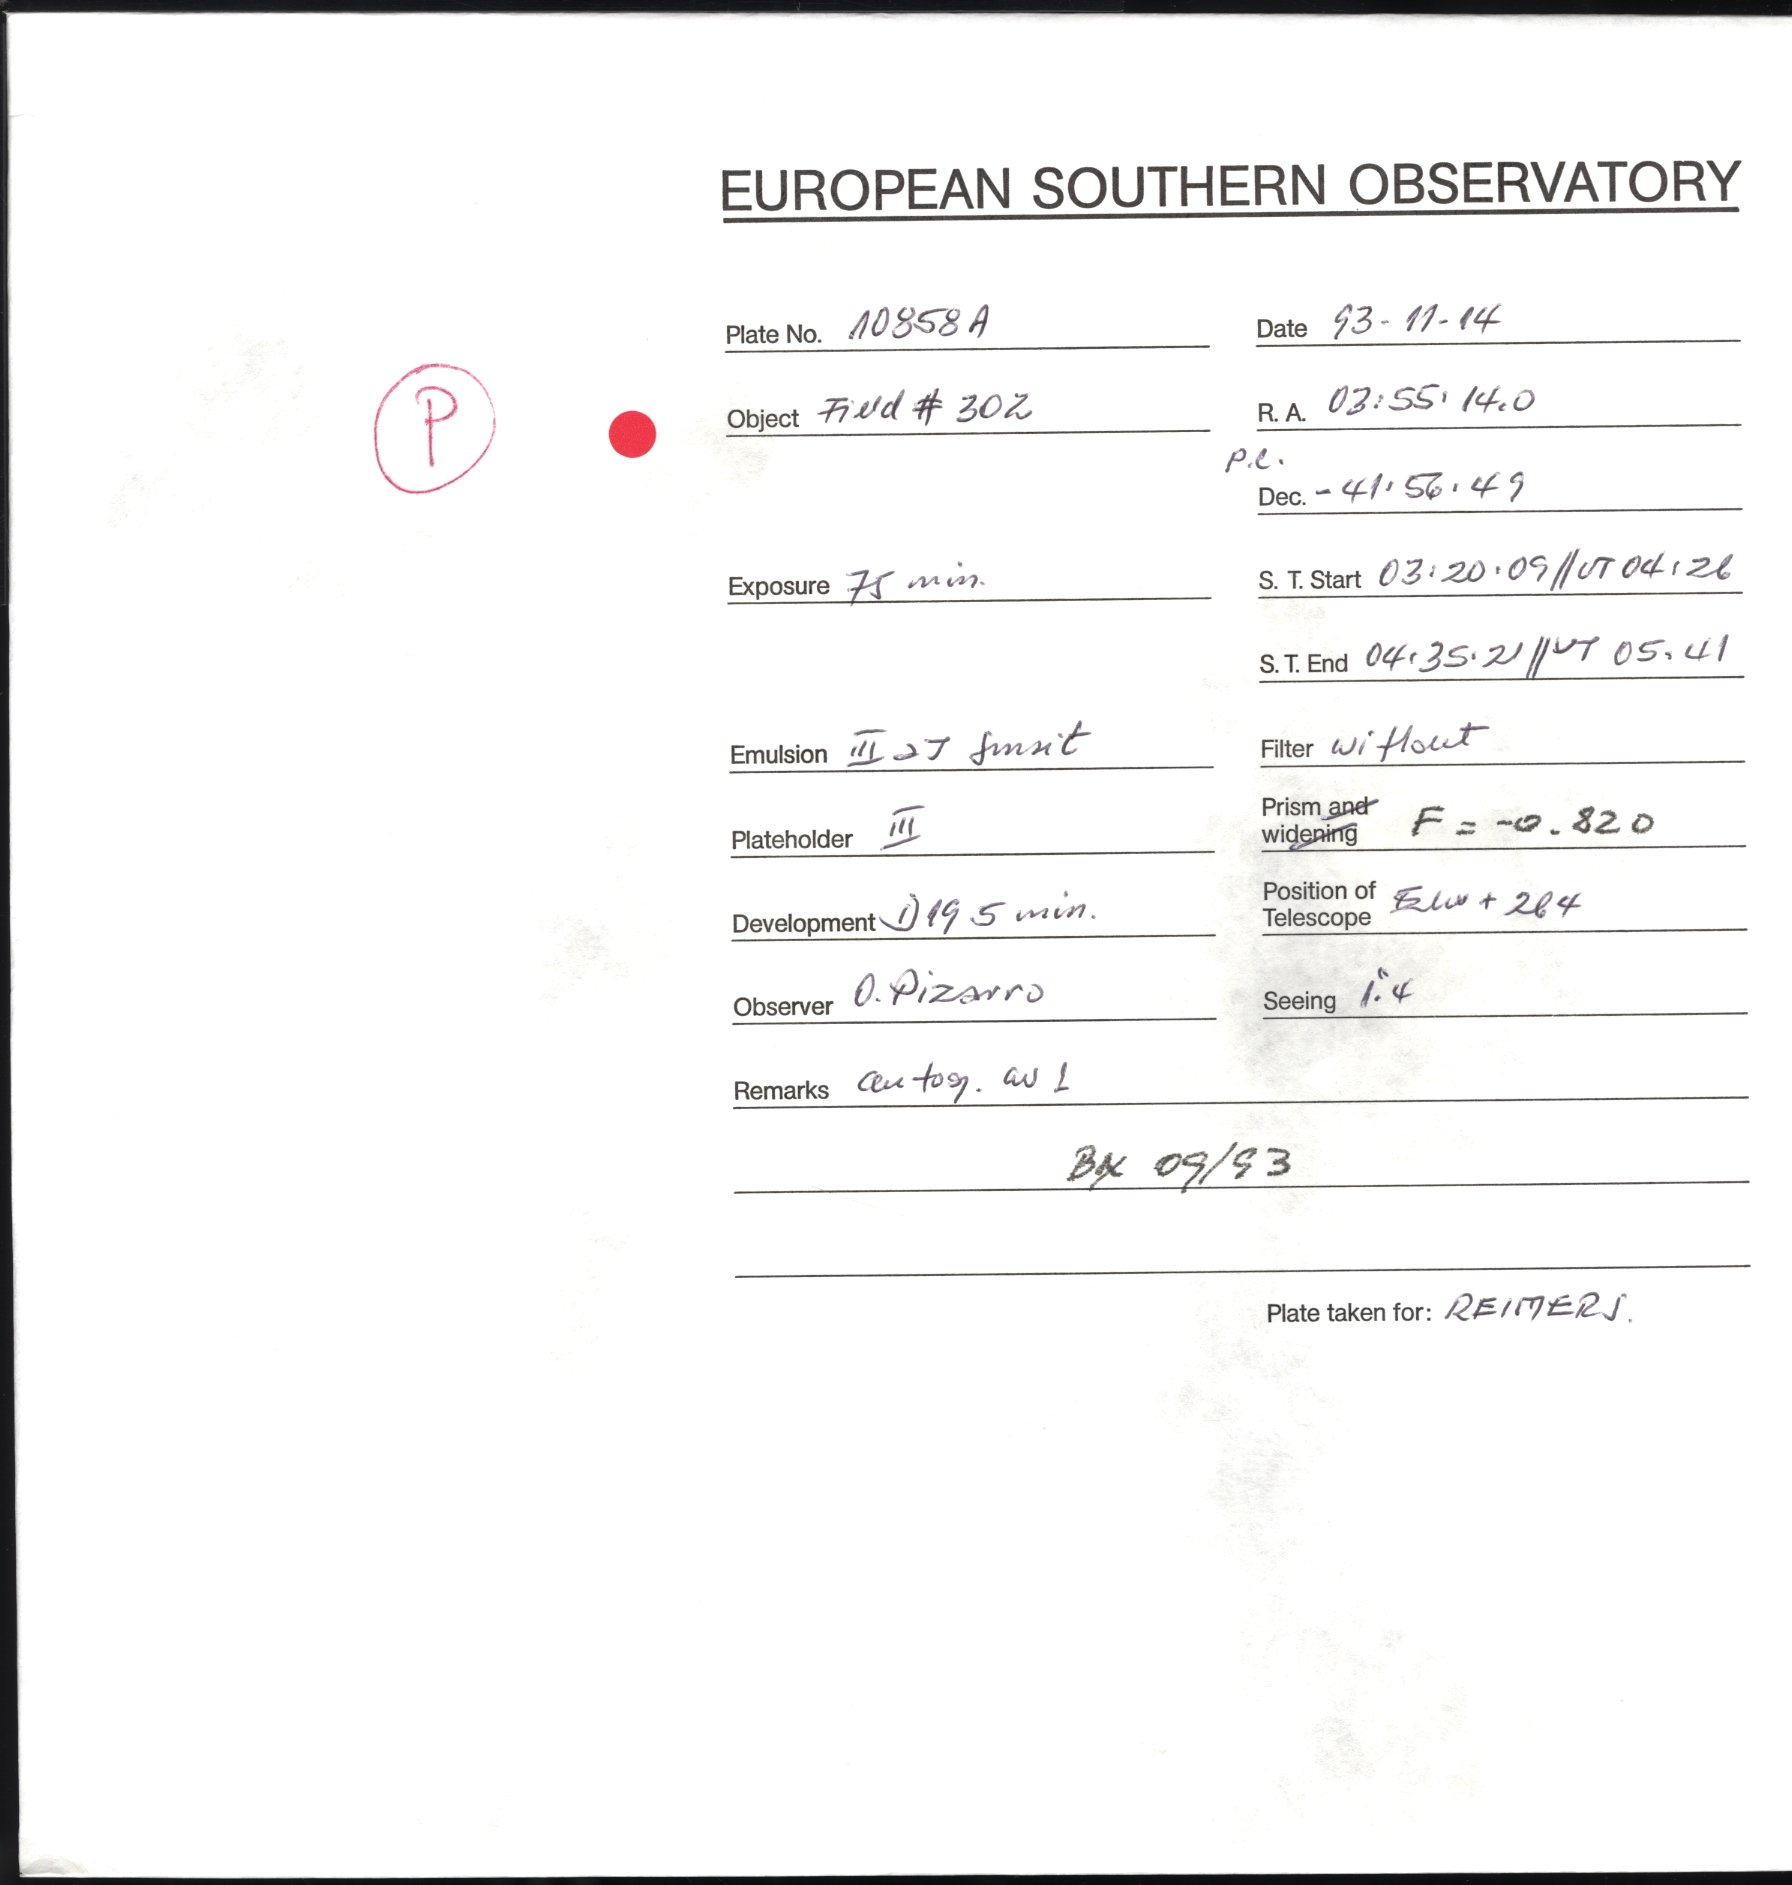 EUROPEAN SOUTHERN OBSERVATORY
Plate No. 10858A
Date 93-11-14
P
Object Field # 302
R. A. 03:55:14.0
p.e.
Dec. -41:56:49
Exposure 75 min.
S. T. Start 03:20:09//UT 04:26
S. T. End 04:35:21//UT 05:41
Emulsion III aJ
Filter without
Plateholder III
Prism and widening F = -0.820
Development D19 5 min.
Position of Telescope + 264
Observer O. Pizarro
Seeing 1".4
Remarks autog.
Bx 09/93
Plate taken for: REIMERS.